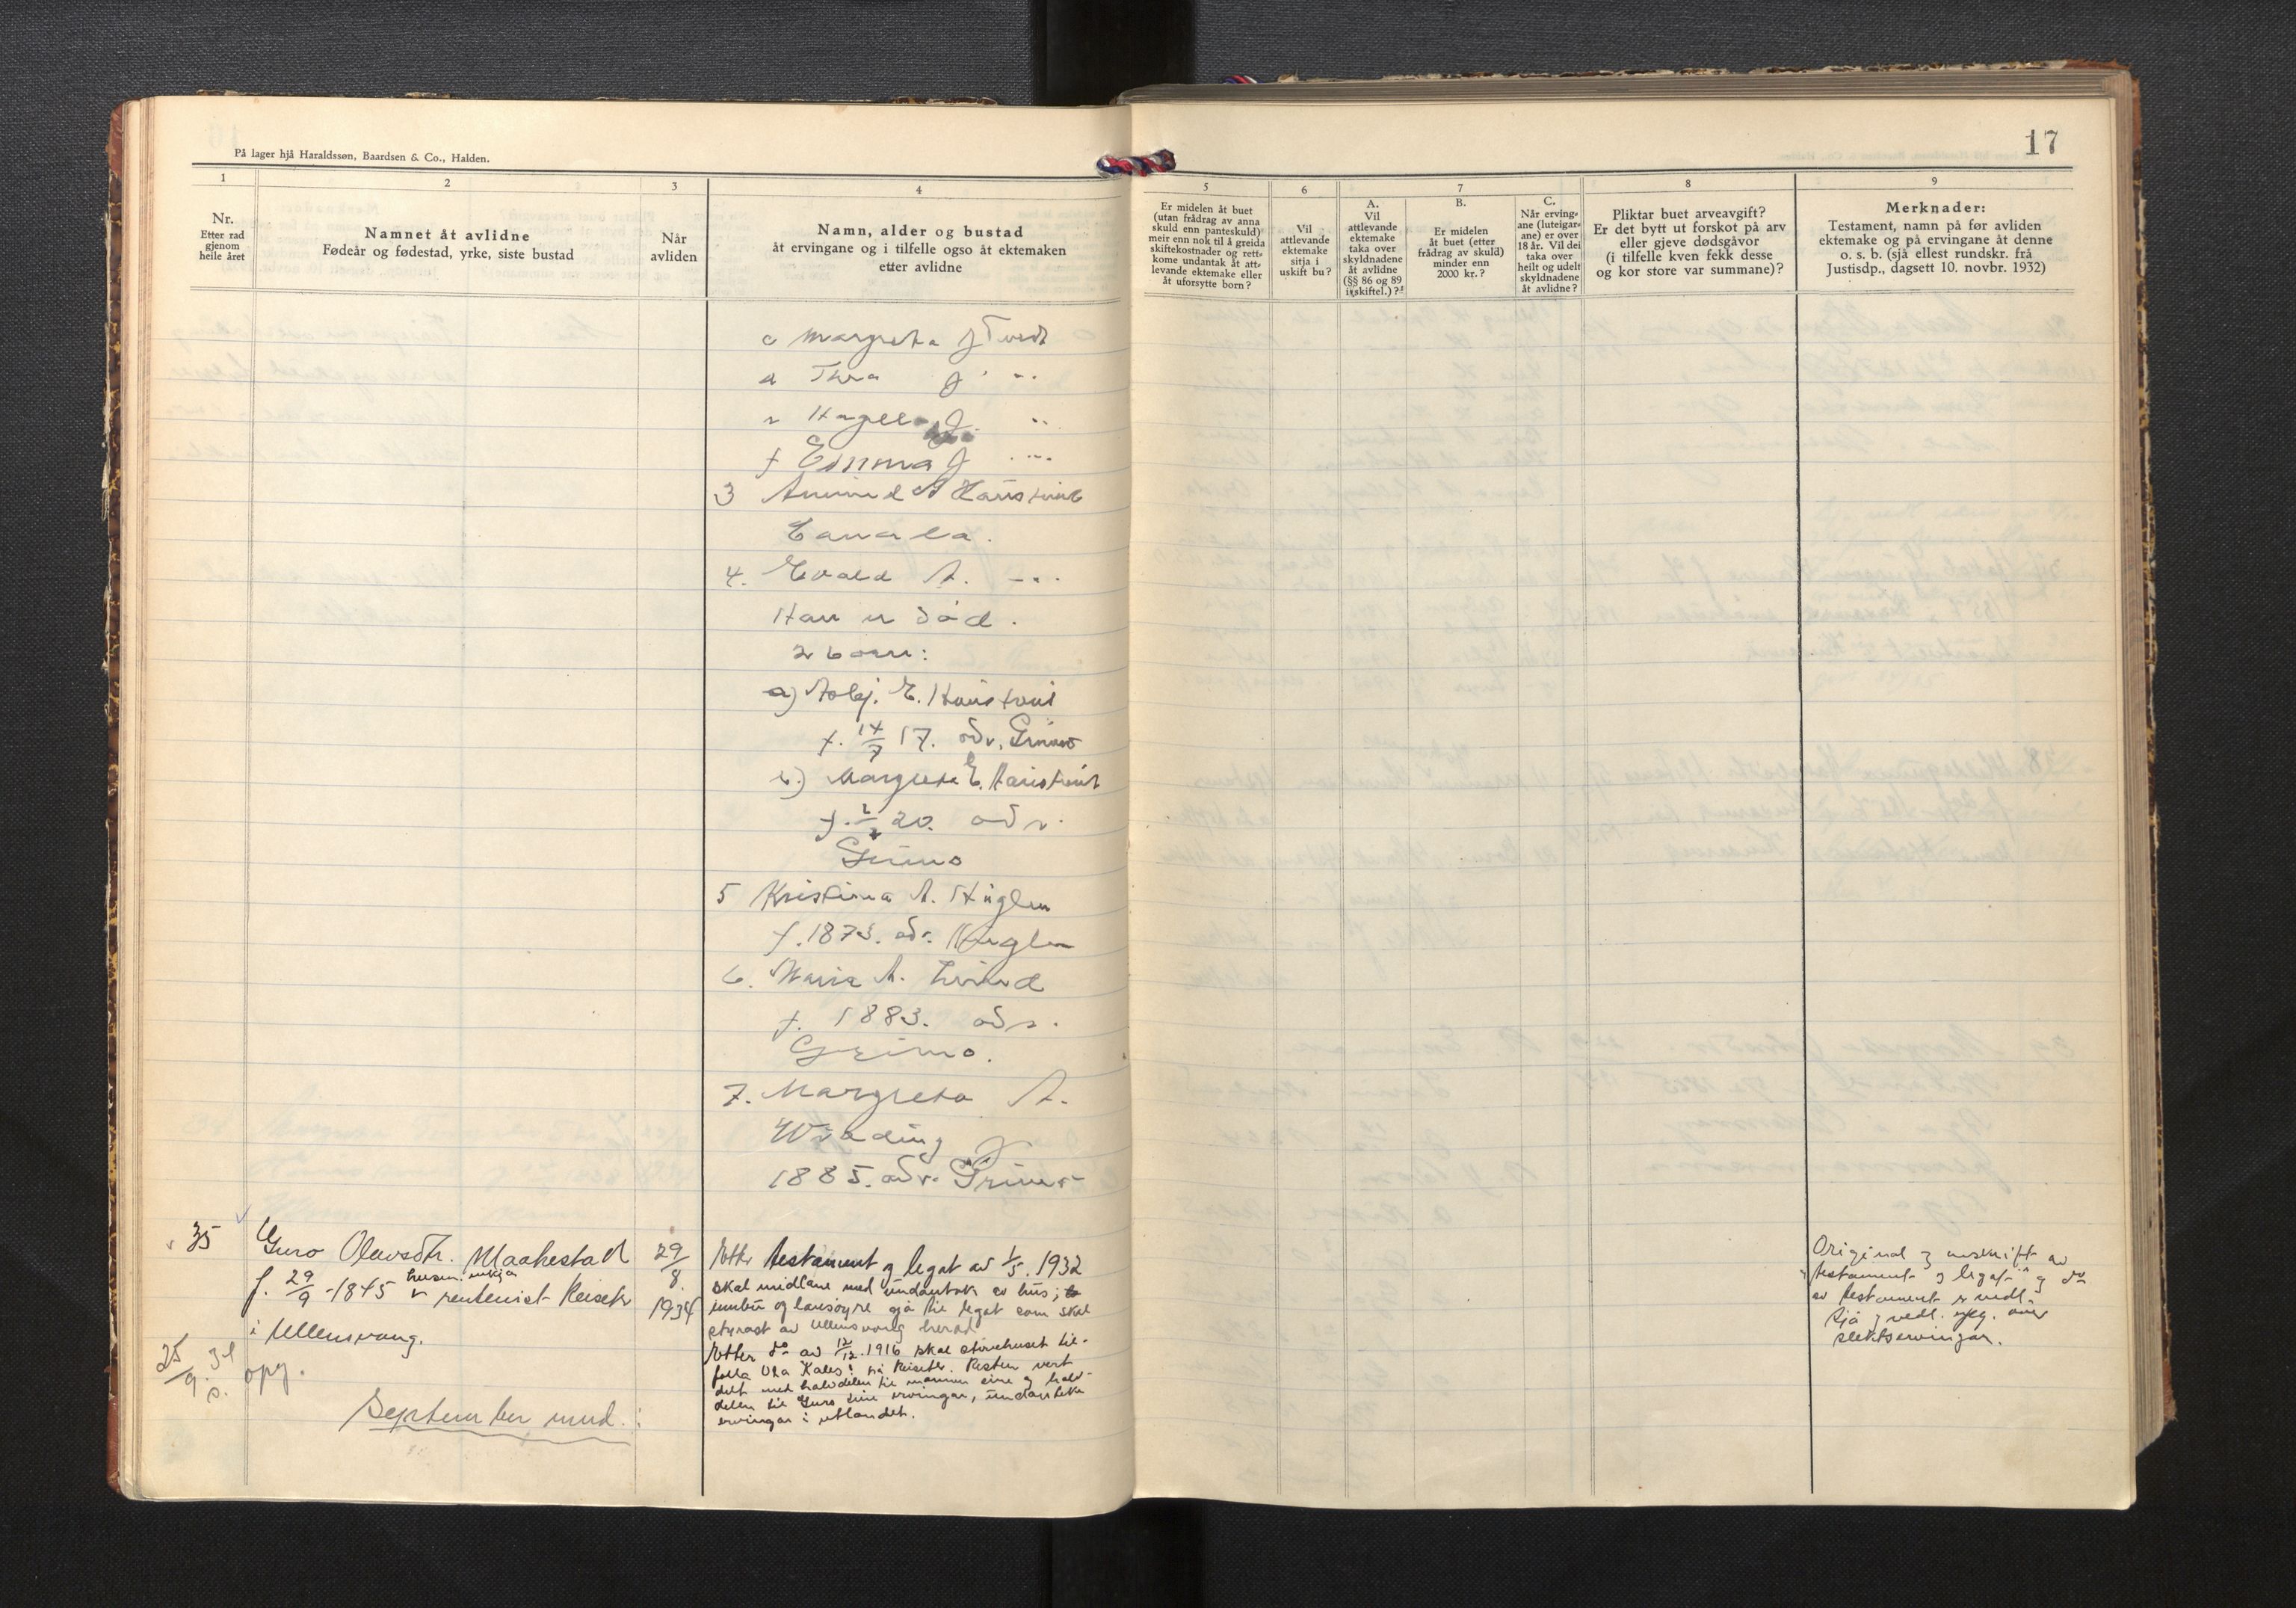 På lager hjå Haraldssøn, Baardsen & Co., Halden.
17
1
2
3
4
5
6
7
8
9
Nr.
Etter rad
gjenom
heile året
Namnet åt avlidne
Fødeår og fødestad, yrke, siste bustad
Når
avliden
Namn, alder og bustad
åt ervingane og i tilfelle ogso åt ektemaken
etter avlidne
Er midelen åt buet
(utan frådrag av anna
skuld enn panteskuld)
meir enn nok til å greida
skiftekostnader og rett-
kome undantak åt att-
levande ektemake eller
åt uforsytte born?
Vil
attlevande
ektemake
sitja i
uskift bu?
A.
Vil
attlevande
ektemake
taka over
skyldnadene
åt avlidne
(§§ 86 og 89
i skiftel.)?
B.
Er midelen
åt buet (etter
frådrag av skuld)
minder enn
2000 kr.?
C.
Når erving-
ane (luteigar-
ane) er over
18 år. Vil dei
taka over
heilt og udelt
skyldnadene
åt avlidne?
Pliktar buet arveavgift?
Er det bytt ut forskot på arv
eller gjeve dødsgåvor
(i tilfelle kven fekk desse
og kor store var summane)?
Merknader:
Testament, namn på før avliden
ektemake og på ervingane åt denne
o. s. b. (sjå ellest rundskr. frå
Justisdp., dagsett 10. novbr. 1932)
c Margreta J Tvedt
d Thea J
J.
f Emma J
3
Canada.
4. Evald A.
Han er død.
2 born:
a)
f. 14/7 17. adr. Grimo
b) Margreta E.
20. adr.
Grimo
5 Kristina A. Huglen
f. 1873. adr. Huglen
6. Maria A.
f. 1883. adr.
Grimo.
7. Margreta A.
f
1885. adr. Grimo
35
Guro Olavsdtr. Maakestad
f. 29/9 - 1845 rentenist Reiseter
i Ullensvang.
29/8 1934
25/9 34 opg.
September mnd.
Etter testament og legat av 1/5. 1932
skal midlane med undantak av hus,
innbu og lausøyre gå til legat som skal
styrast av Ullensvang herad
Etter do av 12/12. 1916 skal stovehuset til-
falla Ola på Reiseter. Resten vert
delt med halvdelen til mannen sine og halv-
delen til Guro sine ervingar, undanteke
ervingar i utlandet.
Original og avskrift av
testament og legat og do
av testament er vedl.
Sjå vedl. opg. over
slektservingar.